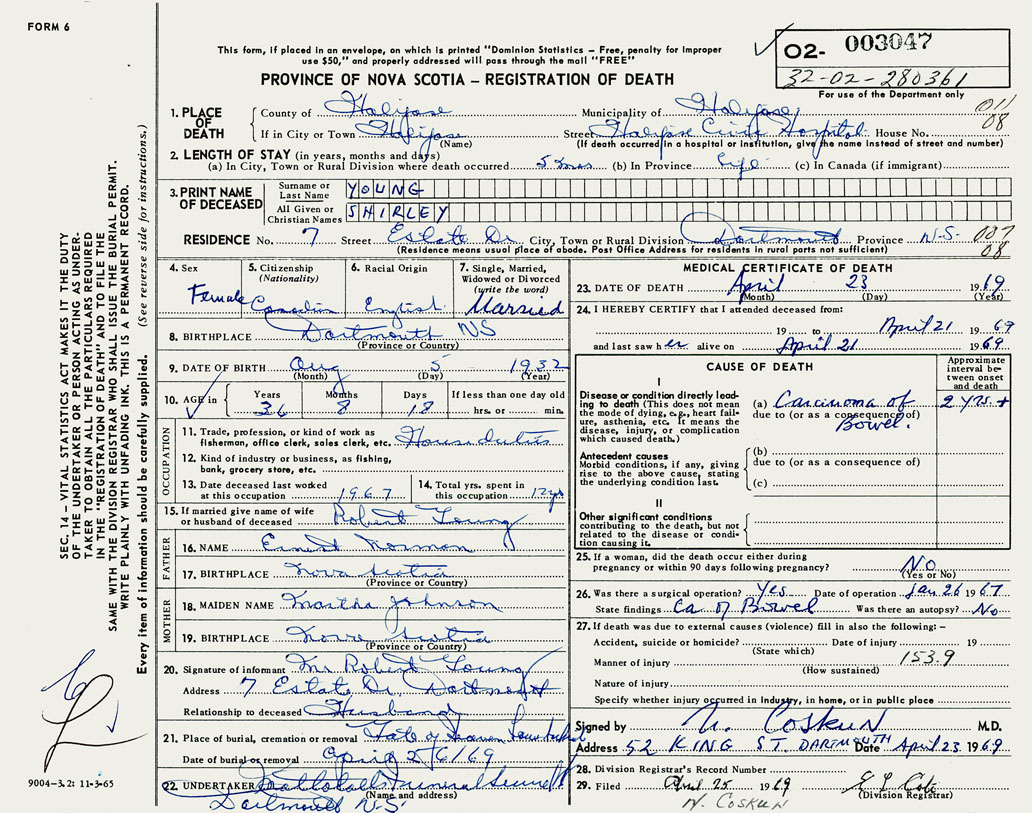 FORM 6
This form, if placed in an envelope, on which is printed "Dominion Statistics – Free, penalty for improper
use $50," and properly addressed will pass through the mail "FREE"
PROVINCE OF NOVA SCOTIA – REGISTRATION OF DEATH
O2- 003047
32-02-280361
For use of the Department only
SEC. 14 – VITAL STATISTICS ACT MAKES IT THE DUTY
OF THE UNDERTAKER OR PERSON ACTING AS UNDER-
TAKER TO OBTAIN ALL THE PARTICULARS REQUIRED
IN THE "REGISTRATION OF DEATH" AND TO FILE THE
SAME WITH THE DIVISION REGISTRAR WHO SHALL ISSUE THE BURIAL PERMIT.
WRITE PLAINLY WITH UNFADING INK. THIS IS A PERMANENT RECORD.
Every item of information should be carefully supplied. (See reverse side for instructions.)
9004-3.2: 11-3-65
1. PLACE OF DEATH
County of Halifax Municipality of Halifax 011
If in City or Town Halifax Street Halifax Civic Hospital House No. 08
(Name) (If death occurred in a hospital or institution, give the name instead of street and number)
2. LENGTH OF STAY (in years, months and days)
(a) In City, Town or Rural Division where death occurred 5 mos (b) In Province Life (c) In Canada (if immigrant)
3. PRINT NAME OF DECEASED
Surname or Last Name YOUNG
All Given or Christian Names SHIRLEY
RESIDENCE No. 7 Street Estate Dr City, Town or Rural Division Dartmouth Province N.S. 007
(Residence means usual place of abode. Post Office Address for residents in rural parts not sufficient) 08
4. Sex Female
5. Citizenship (Nationality) Canadian
6. Racial Origin English
7. Single, Married, Widowed or Divorced (write the word) Married
8. BIRTHPLACE Dartmouth NS
(Province or Country)
9. DATE OF BIRTH Aug 5 1932
(Month) (Day) (Year)
10. AGE in Years 36 Months 8 Days 18 If less than one day old hrs. or min.
OCCUPATION
11. Trade, profession, or kind of work as
fisherman, office clerk, sales clerk, etc. House duties
12. Kind of industry or business, as fishing,
bank, grocery store, etc.
13. Date deceased last worked
at this occupation 1967
14. Total yrs. spent in
this occupation 12 yrs
15. If married give name of wife
or husband of deceased Robert Young
FATHER
16. NAME Ernest Norman
17. BIRTHPLACE Nova Scotia
(Province or Country)
MOTHER
18. MAIDEN NAME Martha Johnson
19. BIRTHPLACE Nova Scotia
(Province or Country)
20. Signature of informant Mr Robert Young
Address 7 Estate Dr. Dartmouth
Relationship to deceased Husband
21. Place of burial, cremation or removal Gate of Heaven
Date of burial or removal April 26/69
22. UNDERTAKER Funeral
(Name and address)
Dartmouth N.S.
MEDICAL CERTIFICATE OF DEATH
23. DATE OF DEATH April 23 1969
(Month) (Day) (Year)
24. I HEREBY CERTIFY that I attended deceased from:
19 to April 21 1969
and last saw her alive on April 21 1969
CAUSE OF DEATH
Approximate interval between onset and death
I
Disease or condition directly lead-
ing to death (This does not mean
the mode of dying, e.g., heart fail-
ure, asthenia, etc. It means the
disease, injury, or complication
which caused death.)
(a) Carcinoma of 2 yrs. +
due to (or as a consequence of)
Bowel.
Antecedent causes
Morbid conditions, if any, giving
rise to the above cause, stating
the underlying condition last.
(b)
due to (or as a consequence of)
(c)
II
Other significant conditions
contributing to the death, but not
related to the disease or condi-
tion causing it.
25. If a woman, did the death occur either during
pregnancy or within 90 days following pregnancy? No
(Yes or No)
26. Was there a surgical operation? Yes Date of operation Jan 26 1967
State findings Ca. of Bowel Was there an autopsy? No
27. If death was due to external causes (violence) fill in also the following: –
Accident, suicide or homicide? Date of injury 19
(State which)
Manner of injury 153.9
(How sustained)
Nature of injury
Specify whether injury occurred in Industry, in home, or in public place
Signed by N. Coskun M.D.
Address 52 KING ST. DARTMOUTH Date April 23 1969
28. Division Registrar's Record Number
29. Filed April 25 1969
(Division Registrar)
N. COSKUN